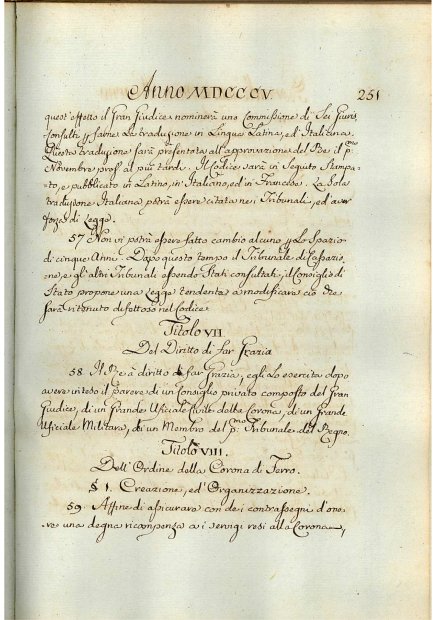 Anno MDCCCV 251
quest'effetto il Gran Giudice nominerà una Commissione di Sei Giuris
consulti per farne la traduzione in Lingua Latina, ed Italiana.
Questa traduzione sarà presentata all'approvazione del Re il p.mo
Novembre pross.o al più tardi. Il Codice sarà in Seguito Stampa-
to, e pubblicato in Latino, in Italiano, ed in Francese. La Sola
traduzione Italiana potrà essere citata nei Tribunali, ed aver
forza di Legge.
57 Non vi potrà essere fatto cambio alcuno per lo Spazio
di cinque Anni. Dopo questo tempo il Tribunale di Cassazio-
ne, e gli altri Tribunali essendo Stati consultati, il Consiglio di
Stato propone una Legge tendente a modificare ciò che
sarà ritenuto difettoso nel Codice.
Titolo VII
Del Diritto di far Grazia
58. Il Re à diritto di far Grazia, egli lo esercita dopo
avere inteso il parere di un Consiglio privato composto del Gran
Giudice, di un Grande Ufficiale Civile della Corona, di un Grande
Ufficiale Militare, di un Membro del p.mo Tribunale del Regno.
Titolo VIII.
Dell'Ordine della Corona di Ferro.
§ 1. Creazione, ed Organizzazione.
59. Affine di assicurare con dei contrassegni d'ono-
re una degna ricompenza a i servigi resi alla Corona,